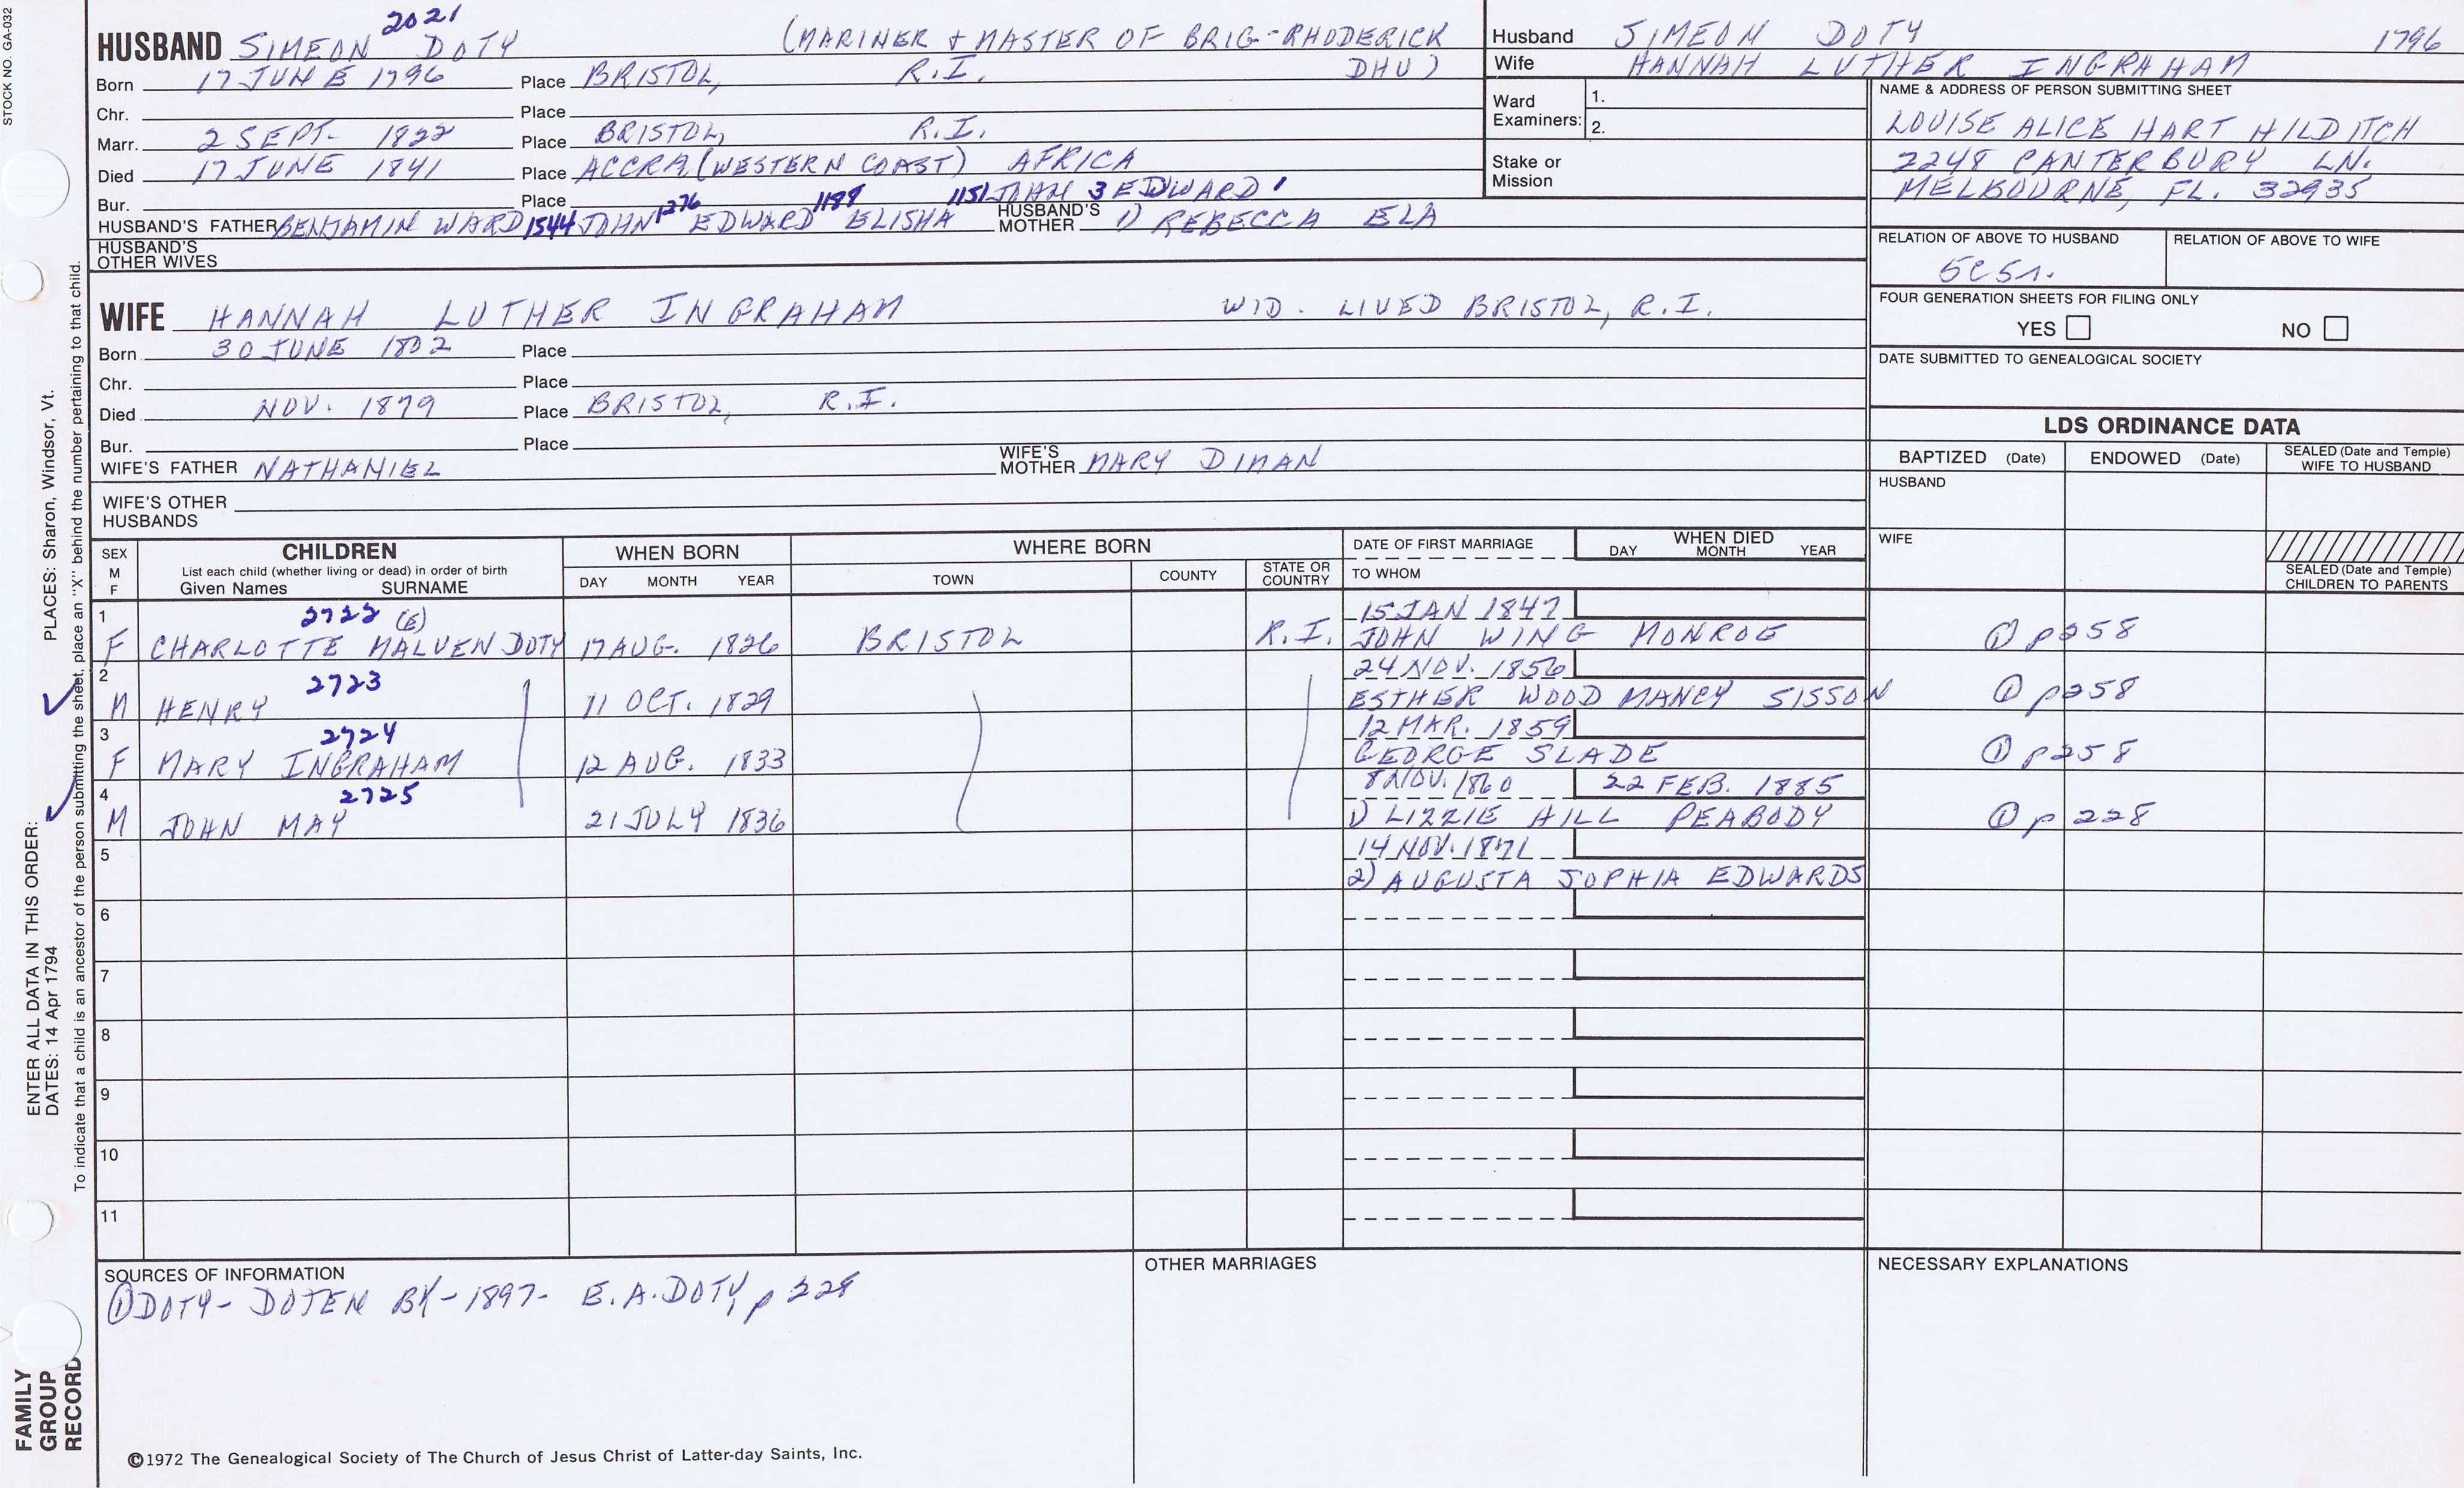 STOCK NO. GA-032
2021
HUSBAND SIMEON DOTY (MARINER + MASTER OF BRIG-RHODERICK DHU)
Born 17 JUNE 1796 Place BRISTOL, R.I.
Chr. Place
Marr. 2 SEPT. 1822 Place BRISTOL, R.I.
Died 17 JUNE 1841 Place ACCRA (WESTERN COAST) AFRICA
Bur. Place
HUSBAND'S FATHER BENJAMIN WARD 1544 JOHN 1276 EDWARD 1188 ELISHA 1151 JOHN 3 EDWARD 1
HUSBAND'S MOTHER 1) REBECCA ELA
HUSBAND'S OTHER WIVES
WIFE HANNAH LUTHER INGRAHAM WID. LIVED BRISTOL, R.I.
Born 30 JUNE 1802 Place
Chr. Place
Died NOV. 1879 Place BRISTOL, R.I.
Bur. Place
WIFE'S FATHER NATHANIEL WIFE'S MOTHER MARY DIMAN
WIFE'S OTHER HUSBANDS
Husband SIMEON DOTY 1796
Wife HANNAH LUTHER INGRAHAM
Ward Examiners: 1.
2.
Stake or Mission
NAME & ADDRESS OF PERSON SUBMITTING SHEET
LOUISE ALICE HART HILDITCH
2248 CANTERBURY LN.
MELBOURNE, FL. 32935
RELATION OF ABOVE TO HUSBAND RELATION OF ABOVE TO WIFE
5C5r.
FOUR GENERATION SHEETS FOR FILING ONLY
YES NO
DATE SUBMITTED TO GENEALOGICAL SOCIETY
LDS ORDINANCE DATA
BAPTIZED (Date) ENDOWED (Date) SEALED (Date and Temple) WIFE TO HUSBAND
HUSBAND
WIFE
SEALED (Date and Temple) CHILDREN TO PARENTS
SEX M F
CHILDREN
List each child (whether living or dead) in order of birth
Given Names SURNAME
WHEN BORN
DAY MONTH YEAR
WHERE BORN
TOWN COUNTY STATE OR COUNTRY
DATE OF FIRST MARRIAGE
TO WHOM
WHEN DIED
DAY MONTH YEAR
1 2722 (E) 15 JAN 1847
F CHARLOTTE MALVEN DOTY 17 AUG. 1826 BRISTOL R.I. JOHN WING MONROE ① p258
2 2723 24 NOV. 1856
M HENRY 11 OCT. 1829 ESTHER WOOD MANCY SISSON ① p258
3 2724 12 MAR. 1859
F MARY INGRAHAM 12 AUG. 1833 GEORGE SLADE ① p258
4 2725 8 NOV. 1860 22 FEB. 1885
M JOHN MAY 21 JULY 1836 1) LIZZIE HILL PEABODY ① p 228
5 14 NOV. 1871
2) AUGUSTA SOPHIA EDWARDS
6
7
8
9
10
11
SOURCES OF INFORMATION
① DOTY - DOTEN BK - 1897 - E. A. DOTY, p 228
OTHER MARRIAGES
NECESSARY EXPLANATIONS
©1972 The Genealogical Society of The Church of Jesus Christ of Latter-day Saints, Inc.
FAMILY GROUP RECORD
ENTER ALL DATA IN THIS ORDER:
DATES: 14 Apr 1794
PLACES: Sharon, Windsor, Vt.
To indicate that a child is an ancestor of the person submitting the sheet, place an "X" behind the number pertaining to that child.